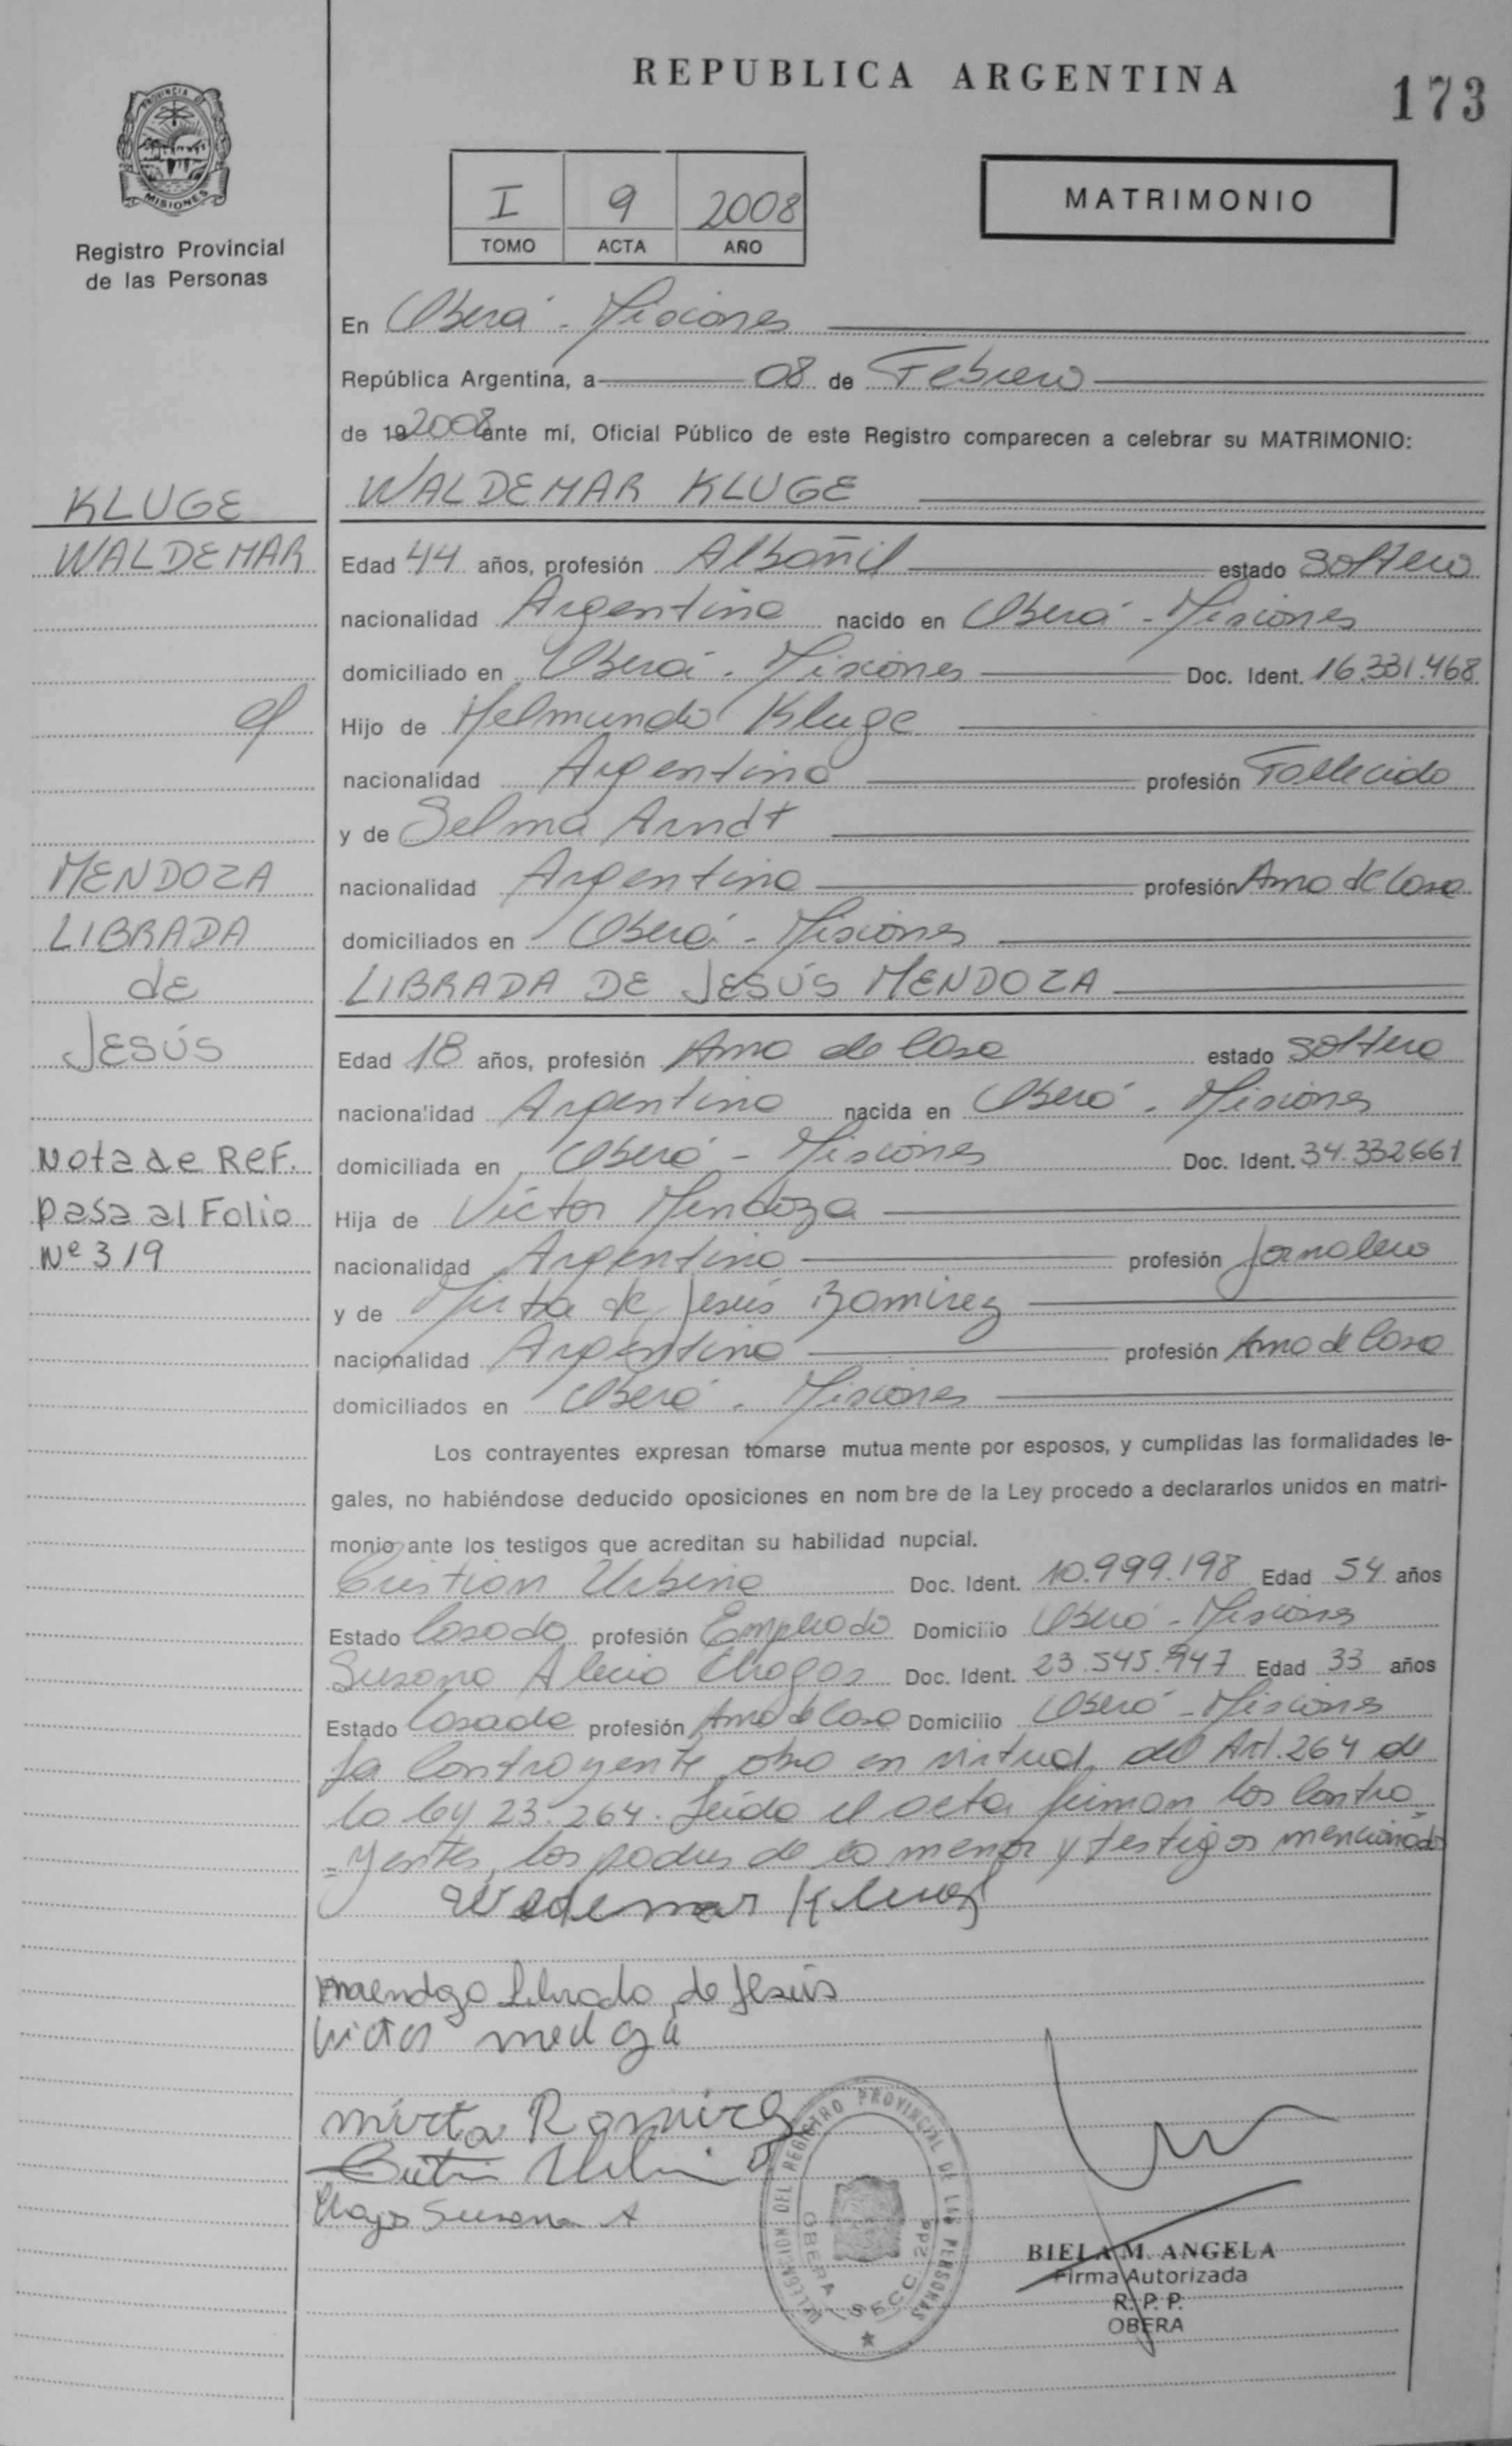 REPUBLICA ARGENTINA
173
PROVINCIA DE
MISIONES
Registro Provincial
de las Personas
I 9 2008
TOMO ACTA AÑO
MATRIMONIO
En Oberá - Misiones
República Argentina, a 08 de Febrero
de 19 2008 ante mí, Oficial Público de este Registro comparecen a celebrar su MATRIMONIO:
KLUGE
WALDEMAR
WALDEMAR KLUGE
Edad 44 años, profesión Albañil estado soltero
nacionalidad Argentina nacido en Oberá - Misiones
domiciliado en Oberá - Misiones Doc. Ident. 16.331.468
Hijo de Helmundo Kluge
nacionalidad Argentina profesión Fallecido
y de Selma Arndt
nacionalidad Argentina profesión Ama de Casa
domiciliados en Oberá - Misiones
MENDOZA
LIBRADA
de
JESÚS
LIBRADA DE JESÚS MENDOZA
Edad 18 años, profesión Ama de Casa estado soltera
nacionalidad Argentina nacida en Oberá - Misiones
domiciliada en Oberá - Misiones Doc. Ident. 34.332661
Hija de Víctor Mendoza
nacionalidad Argentina profesión Jornalero
y de Mirta de Jesús Ramirez
nacionalidad Argentina profesión Ama de Casa
domiciliados en Oberá - Misiones
Nota de Ref.
pasa al Folio
Nº 319
Los contrayentes expresan tomarse mutua mente por esposos, y cumplidas las formalidades le-
gales, no habiéndose deducido oposiciones en nom bre de la Ley procedo a declararlos unidos en matri-
monio ante los testigos que acreditan su habilidad nupcial.
Cristian Urbina Doc. Ident. 10.999.198 Edad 54 años
Estado Casado profesión Empleado Domicilio Oberá - Misiones
Susana Alicia Chagas Doc. Ident. 23.545.947 Edad 33 años
Estado Casada profesión Ama de Casa Domicilio Oberá - Misiones
La Contrayente obra en virtud del Art. 264 de
la ley 23.264. Leída el acta firman los Contra
=yentes, los padres de la menor y testigos mencionados
Waldemar Kluge
Maendoza Librada de Jesús
Victor
Mirta Ramirez
Chagas Susana A
DELEGACION DEL REGISTRO PROVINCIAL DE LAS PERSONAS
OBERA SECC. 2da
BIELA M. ANGELA
Firma Autorizada
R. P. P.
OBERA